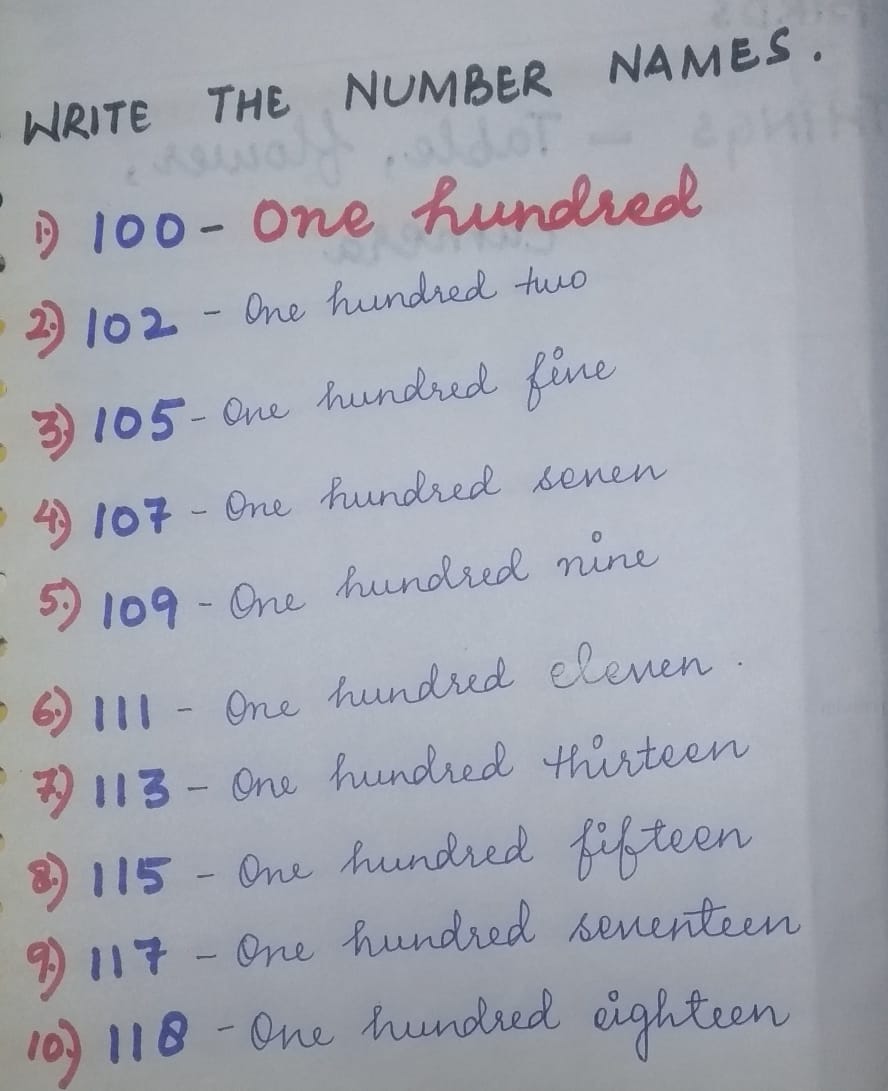 WRITE THE NUMBER NAMES.
1.) 100 - One hundred
2.) 102 - One hundred two
3.) 105 - One hundred five
4.) 107 - One hundred seven
5.) 109 - One hundred nine
6.) 111 - One hundred eleven.
7.) 113 - One hundred thirteen
8.) 115 - One hundred fifteen
9.) 117 - One hundred seventeen
10.) 118 - One hundred eighteen